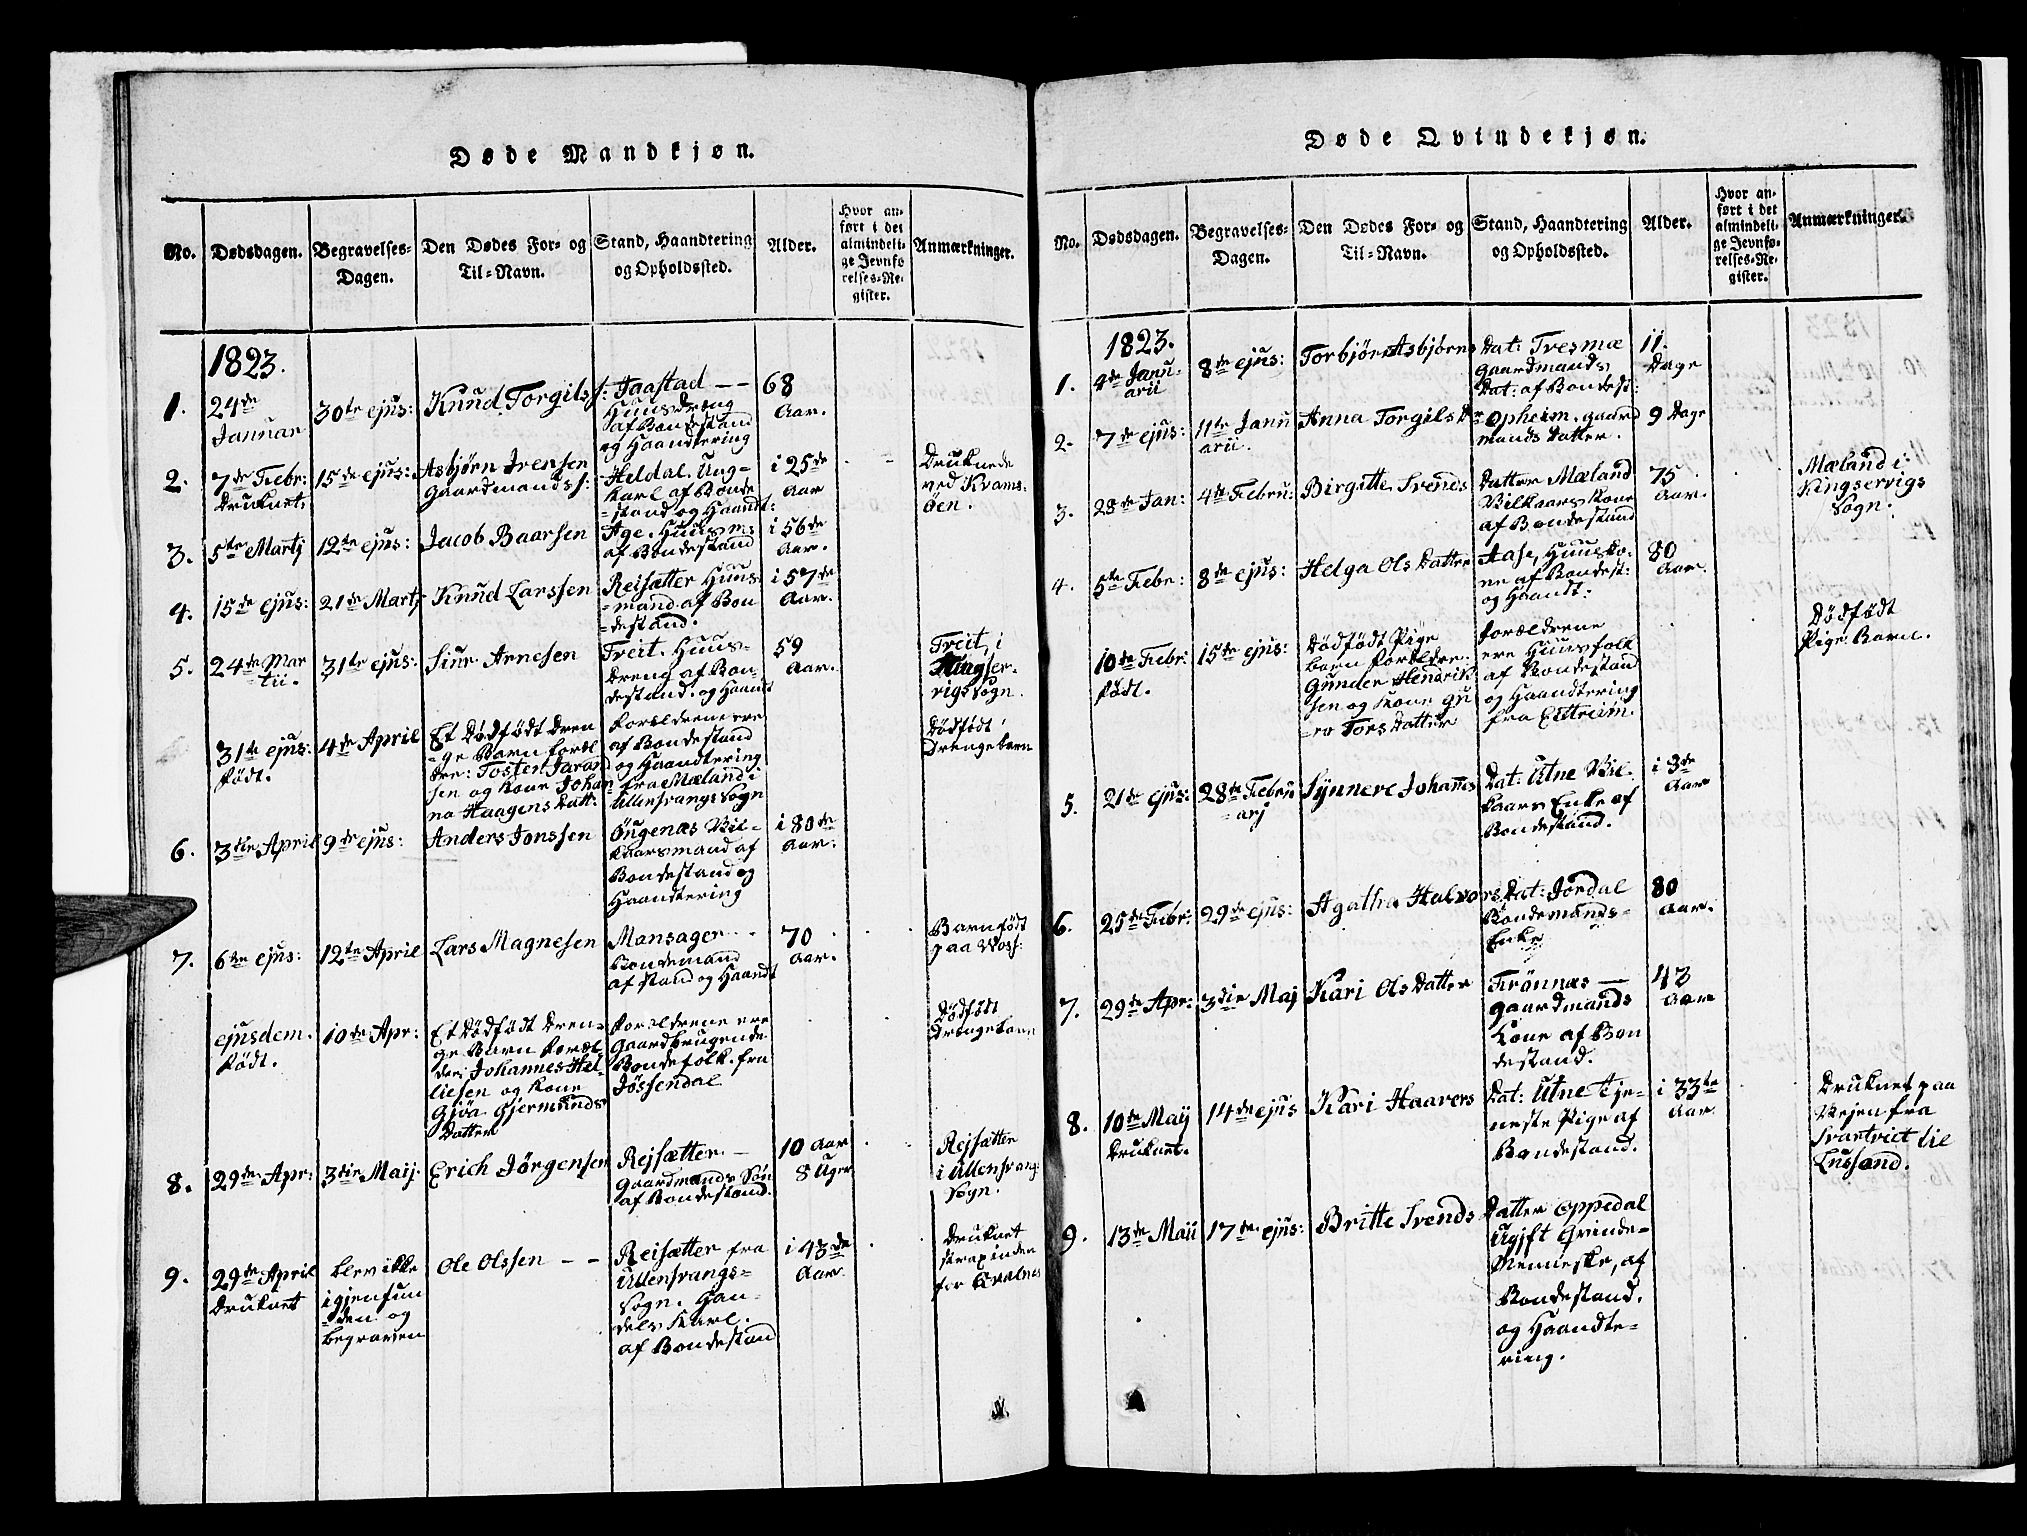 Døde Mandkjøn.
No.
Dødsdagen.
Begravelses-
Dagen.
Den Dødes For- og
Til-Navn.
Stand, Haandtering
og Opholdssted.
Alder.
Hvor an-
ført i det
almindeli-
ge Jevnfø-
relses-Re-
gister.
Anmærkninger.
1823.
1.
24de
Januar
30te ejus:
Knud Torgils s:
Jaastad --
Huusdreng
af Bondestand
og Haandtering
68
Aar.
2.
7de Febr:
Druknet.
15de ejus:
Asbjørn Ivensen
Gaardmands s:
Heldal. Ung-
karl af Bonde
-stand og Haandt:
i 25de
Aar
Druknede
ved Kvams-
öen.
3.
5te Martj
12te ejus:
Jacob Baarsen
Age. Huusm:
af Bondestand
i 56de
Aar.
4.
15de ejus:
21de Martj
Knud Larssen
Reisætter Huus
-mand af Bon
-destand.
i 57de
Aar.
5.
24de Mar
tii.
31te ejus:
Siur Arnesen
Treit. Huus-
dreng af Bon-
destand. og Haandt
59
Aar.
Treit, i
Kingser-
vigs Sogn.
31te ejus:
født.
4de April
Et Dødfødt Dren
-ge Barn foræl
dre: Tosten Jarand
sen og Kone Johan
na Haagens Datt:
Forældrene ere
af Bondestand
og Haandtering
fra Mæland i
Ullensvangs Sogn
Dödfödt
Drengebarn
6.
3die April
9de ejus:
Anders Jonssen
Öugenæs Vil-
kaarsmand af
Bondestand og
Haandtering
i 80de
Aar.
7.
6te ejus:
12te April
Lars Magnesen
Mansager
Bondemand
af stand og Haandt
70
Aar.
Barnfödt
paa Voss.
ejusdem.
født.
10de Apr:
Et Dödfödt Dren-
ge Barn Foræl-
dre: Johannes Hel-
liesen og Kone
Gjöa Gjermunds
Datter
Forældrene ere
Gaardbrugende
Bondefolk. fra
Jössendal
Dödfödt
Drengebarn
8.
29de Apr:
3die Maij.
Erich Jörgensen
Rejsætter.
Gaardmands Sön
af Bondestand.
10 Aar
8 Uger
Rejsætter
i Ullensvang
Sogn.
9.
29de April
Druknet
blev ikke
igjenfun
-den og
begraven
Ole Olssen --
Reisætter fra
Ullensvangs-
Sogn. Han-
dels Karl.
af Bondestand
i 43de
Aar.
Druknet
for Kvalnes
Døde Qvindekjøn.
No.
Dødsdagen.
Begravelses-
Dagen.
Den Dødes For- og
Til-Navn.
Stand, Haandtering
og Opholdssted.
Alder.
Hvor an-
ført i det
almindeli-
ge Jevnfø-
relses-Re-
gister.
Anmærkninger.
1823.
1.
4de Janu-
arii
8de ejus:
Torbjör Asbjörns
Dat: Tresmæ
Gaardmands
Dat: af Bondest:
11.
Dage
2.
7de ejus:
11te Janu
arii.
Anna Torgils Dr
Opheim. gaard
mands Datter.
9 Dage
3.
28de Jan:
4de Februr:
Birgitte Svends
Datter Mæland
Vilkaars Kone
af Bondestand
75
Aar.
Mæland i
Kingservigs
Sogn.
4.
5te Febr:
8de ejus:
Helga Ols Datter
Aase, Huusko-
ne af Bondest:
og Haandt:
80
Aar.
10de Febr:
født.
15de ejus:
Dödfödt Pige
barn Forældre.
Gunder Hendrik
sen og Kone Gu
-ro Tors Datter
Forældrene
ere Huusfolk
af Bondestand
og Haandtering
fra Eittreim.
Dödfödt
Pige Barn.
5.
21de ejus:
28de Febru
-arj
Synneve Johans
Dat: Utne Vil
kaars Enke af
Bondestand.
i 3de
Aar
6.
25de Febr:
29de ejus:
Agatha Halvors
Dat: Jordal
Bondemands-
Enke
80
Aar.
7.
29de Apr:
3die Maj
Kari Ols Datter
Trönnæs —
Gaardmands
Kone af Bon
destand.
43
Aar
8.
10de Maij
Druknet.
14de ejus
Kari Haavers
Dat: Utne Tje-
neste Pige af
Bondestand.
i 33te
Aar.
Druknet paa
Vejen fra
Svartviet til
Lussand.
9.
13de Maii
17de ejus:
Britte Svends
Datter Oppedal
Ugift Qvinde-
Menneske, af
Bondestand.
og Haandte-
ring.